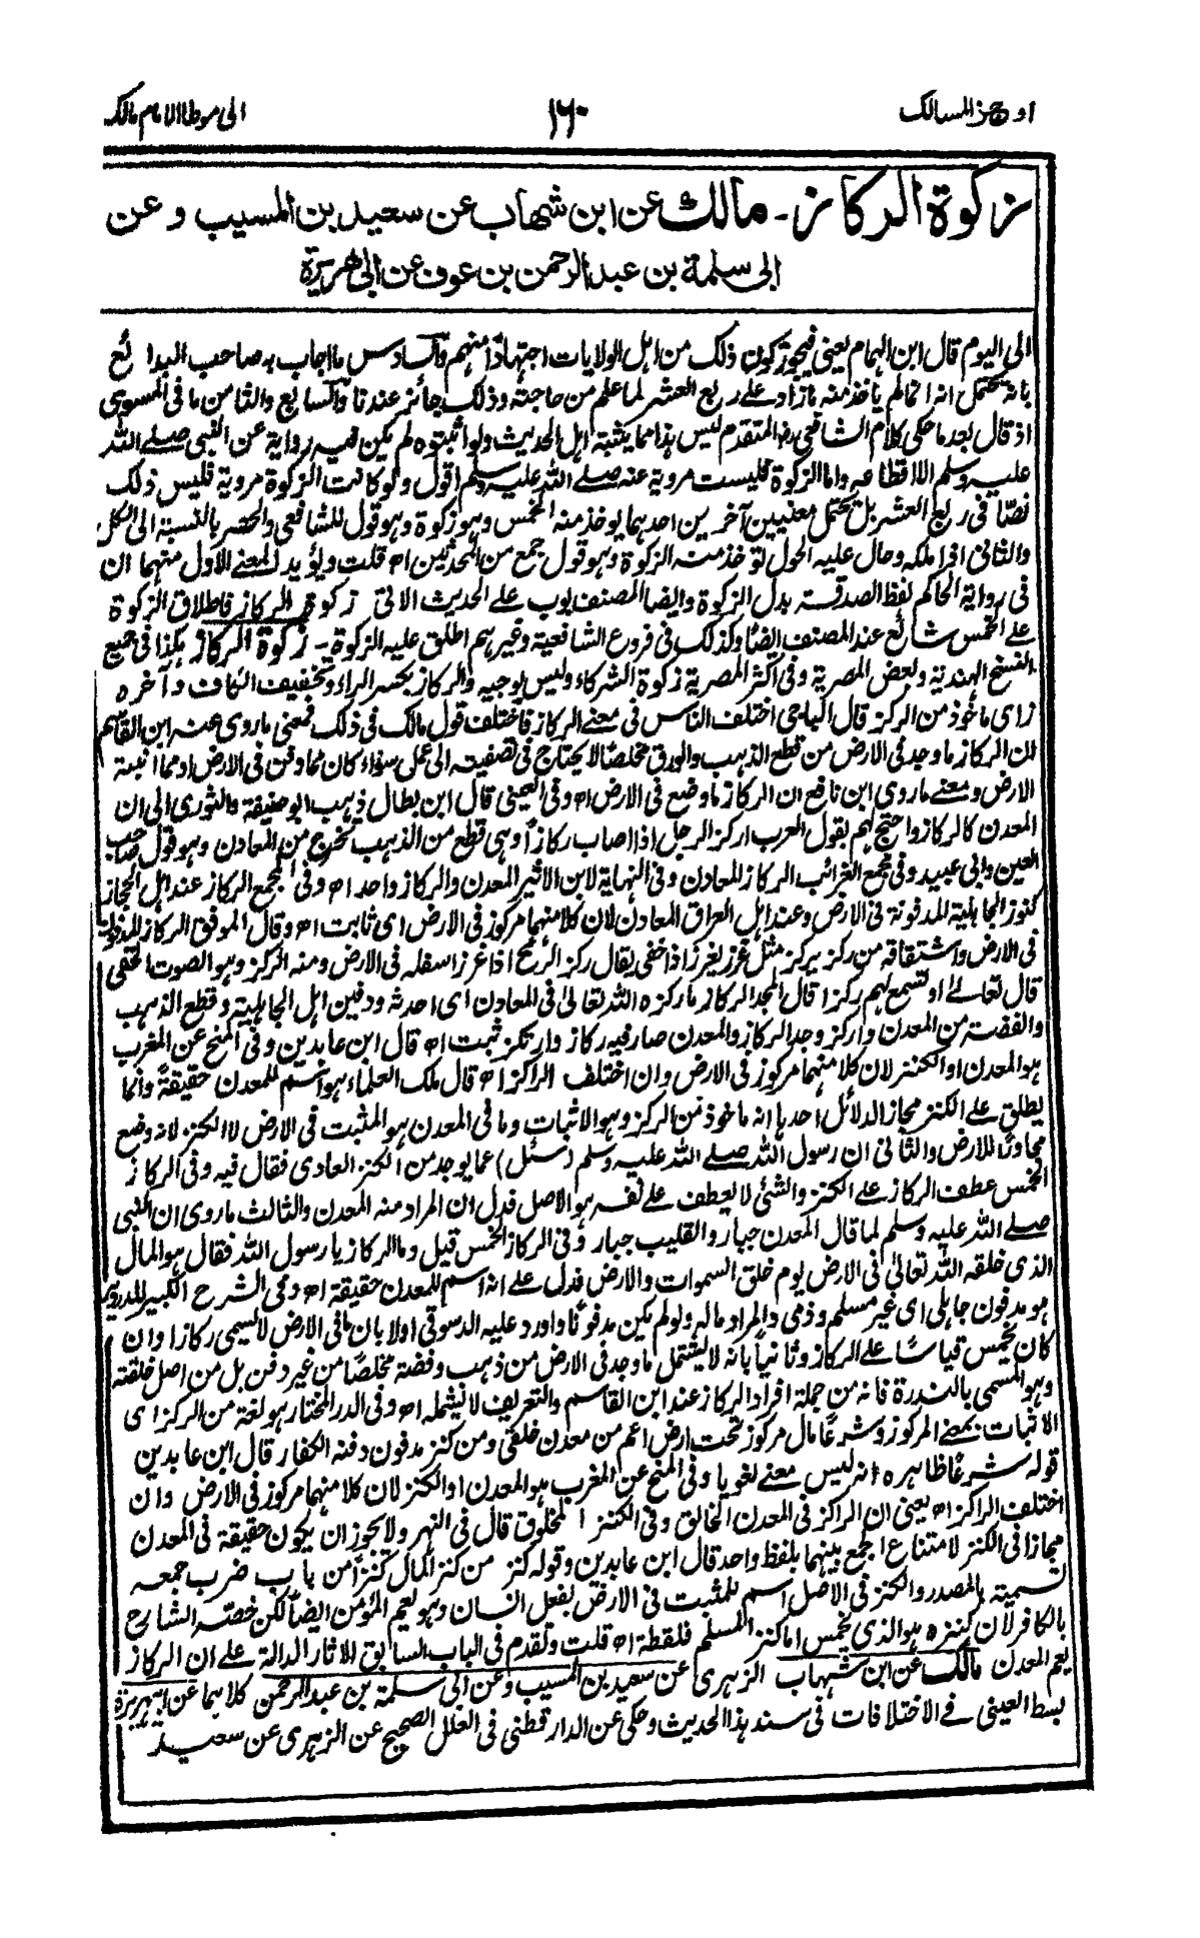 اوجز المسالك
١٦٠
الى موطا الامام مالك
زكوة الركاز ـ مالك عن ابن شهاب عن سعيد بن المسيب وعن
ابى سلمة بن عبد الرحمن بن عوف عن ابى هريرة
الى اليوم قال ابن الهمام يعنى فيجوز كون ذلك من اهل الولايات اجتهادا منهم والسادس ما اجاب به صاحب البدائع
بانه يحتمل انه انما لم ياخذ منه ما زاد على ربع العشر لما علم من حاجته وذلك جائز عندنا والسابع والثامن ما فى المسوى
اذ قال بعد ما حكى كلام الشافعى رض المتقدم ليس هذا مما يثبته اهل الحديث ولو اثبتوه لم يكن فيه رواية عن النبى صلى الله
عليه وسلم الا اقطاعه واما الزكوة فليست مروية عنه صلى الله عليه وسلم اقول ولو كانت الزكوة مروية فليس ذلك
نصا فى ربع العشر بل تحتمل معنيين آخرين احدهما يوخذ منه الخمس وهو زكوة وهو قول للشافعى والحصر بالنسبة الى الكل
والثانى اذا ملكه وحال عليه الحول تؤخذ منه الزكوة وهو قول جمع من المحدثين اه قلت ويؤيد المعنى الاول منهما ان
فى رواية الحاكم لفظ الصدقة بدل الزكوة وايضا المصنف بوب على الحديث الاتى زكوة الركاز فاطلاق الزكوة
على الخمس شائع عند المصنف ايضا وكذلك فى فروع الشافعية وغيرهم اطلق عليه الزكوة ـ زكوة الركاز هكذا فى جميع
النسخ الهندية وبعض المصرية وفى اكثر المصرية زكوة الشركاء وليس بوجيه والركاز بكسر الراء وتخفيف الكاف وآخره
زاى ماخوذ من الركز قال الباجى اختلف الناس فى معنى الركاز فاختلف قول مالك فى ذلك فمعنى ما روى عنه ابن القاسم
ان الركاز ما وجد فى الارض من قطع الذهب والورق مخلصا لا يحتاج فى تصفيته الى عمل سواء كان مما دفن فى الارض او مما انبته
الارض ومعنى ما روى ابن نافع ان الركاز ما وضع فى الارض اه وفى العينى قال ابن بطال ذهب ابو حنيفة والثورى الى ان
المعدن كالركاز واحتج لهم بقول العرب اركز الرجل اذا اصاب ركازا وهى قطع من الذهب تخرج من المعادن وهو قول صاحب
العين وابى عبيد وفى مجمع الغرائب الركاز المعادن وفى النهاية لابن الاثير المعدن والركاز واحد اه وفى المجمع الركاز عند اهل الحجاز
كنوز الجاهلية المدفونة فى الارض وعند اهل العراق المعادن لان كلا منهما مركوز فى الارض اى ثابت اه وقال الموفق الركاز المدفون
فى الارض واشتقاقه من ركز يركز مثل غرز يغرز اذا خفى يقال ركز الرمح اذا غرز اسفله فى الارض ومنه الركز وهو الصوت الخفى
قال تعالى او تسمع لهم ركزا قال المجد الركاز ما ركزه الله تعالى فى المعادن اى احدثه ودفين اهل الجاهلية وقطع الذهب
والفضة من المعدن واركز وجد الركاز والمعدن صار فيه ركاز وارتكز ثبت اه قال ابن عابدين وفى المنح عن المغرب
هو المعدن او الكنز لان كلا منهما مركوز فى الارض وان اختلف الراكز اه قال ملك العلماء هو اسم للمعدن حقيقة وانما
يطلق على الكنز مجاز الدلائل احدها انه ماخوذ من الركز وهو الاثبات وما فى المعدن هو المثبت فى الارض لا الكنز لانه وضع
مجاورا للارض والثانى ان رسول الله صلى الله عليه وسلم (سئل) عما يوجد من الكنز العادى فقال فيه وفى الركاز
الخمس عطف الركاز على الكنز والشئ لا يعطف على نفسه هو الاصل فدل ان المراد منه المعدن والثالث ما روى ان النبى
صلى الله عليه وسلم لما قال المعدن جبار والقليب جبار وفى الركاز الخمس قيل وما الركاز يا رسول الله فقال هو المال
الذى خلقه الله تعالى فى الارض يوم خلق السموات والارض فدل على انه اسم للمعدن حقيقة اه وفى الشرح الكبير للدردير
هو مدفون جاهلى اى غير مسلم وذمى والمراد ماله ولو لم يكن مدفونا واورد عليه الدسوقى اولا بان ما فى الارض لا يسمى ركازا وان
كان يخمس قياسا على الركاز وثانيا بانه لا يشتمل ما وجد فى الارض من ذهب وفضة مخلصا من غير دفن بل من اصل خلقته
وهو المسمى بالندرة فانه من جملة افراد الركاز عند ابن القاسم والتعريف لا يشمله اه وفى الدر المختار هو لغة من الركز اى
الاثبات بمعنى المركوز وشرعا مال مركوز تحت ارض اعم من معدن خلقى ومن كنز مدفون دفنه الكفار قال ابن عابدين
قوله شرعا ظاهره انه ليس معنى لغويا وفى المنح عن المغرب هو المعدن او الكنز لان كلا منهما مركوز فى الارض وان
اختلف الراكز اه يعنى ان الراكز فى المعدن الخالق وفى الكنز المخلوق قال فى النهر ولا يجوز ان يكون حقيقة فى المعدن
مجازا فى الكنز لامتناع الجمع بينهما بلفظ واحد قال ابن عابدين وقوله كنز من كنز المال كنزا من باب ضرب جمعه
تسمية بالمصدر والكنز فى الاصل اسم للمثبت فى الارض بفعل انسان وهو يعم المؤمن ايضا لكن خصه الشارح
بالكافر لان كنزه هو الذى يخمس اما كنز المسلم فلقطة اه قلت وتقدم فى الباب السابق الاثار الدالة على ان الركاز
يعم المعدن مالك عن ابن شهاب الزهرى عن سعيد بن المسيب وعن ابى سلمة بن عبد الرحمن كلاهما عن ابى هريرة
بسط العينى فى الاختلافات فى سند هذا الحديث وحكى عن الدار قطنى فى العلل الصحيح عن الزهرى عن سعيد